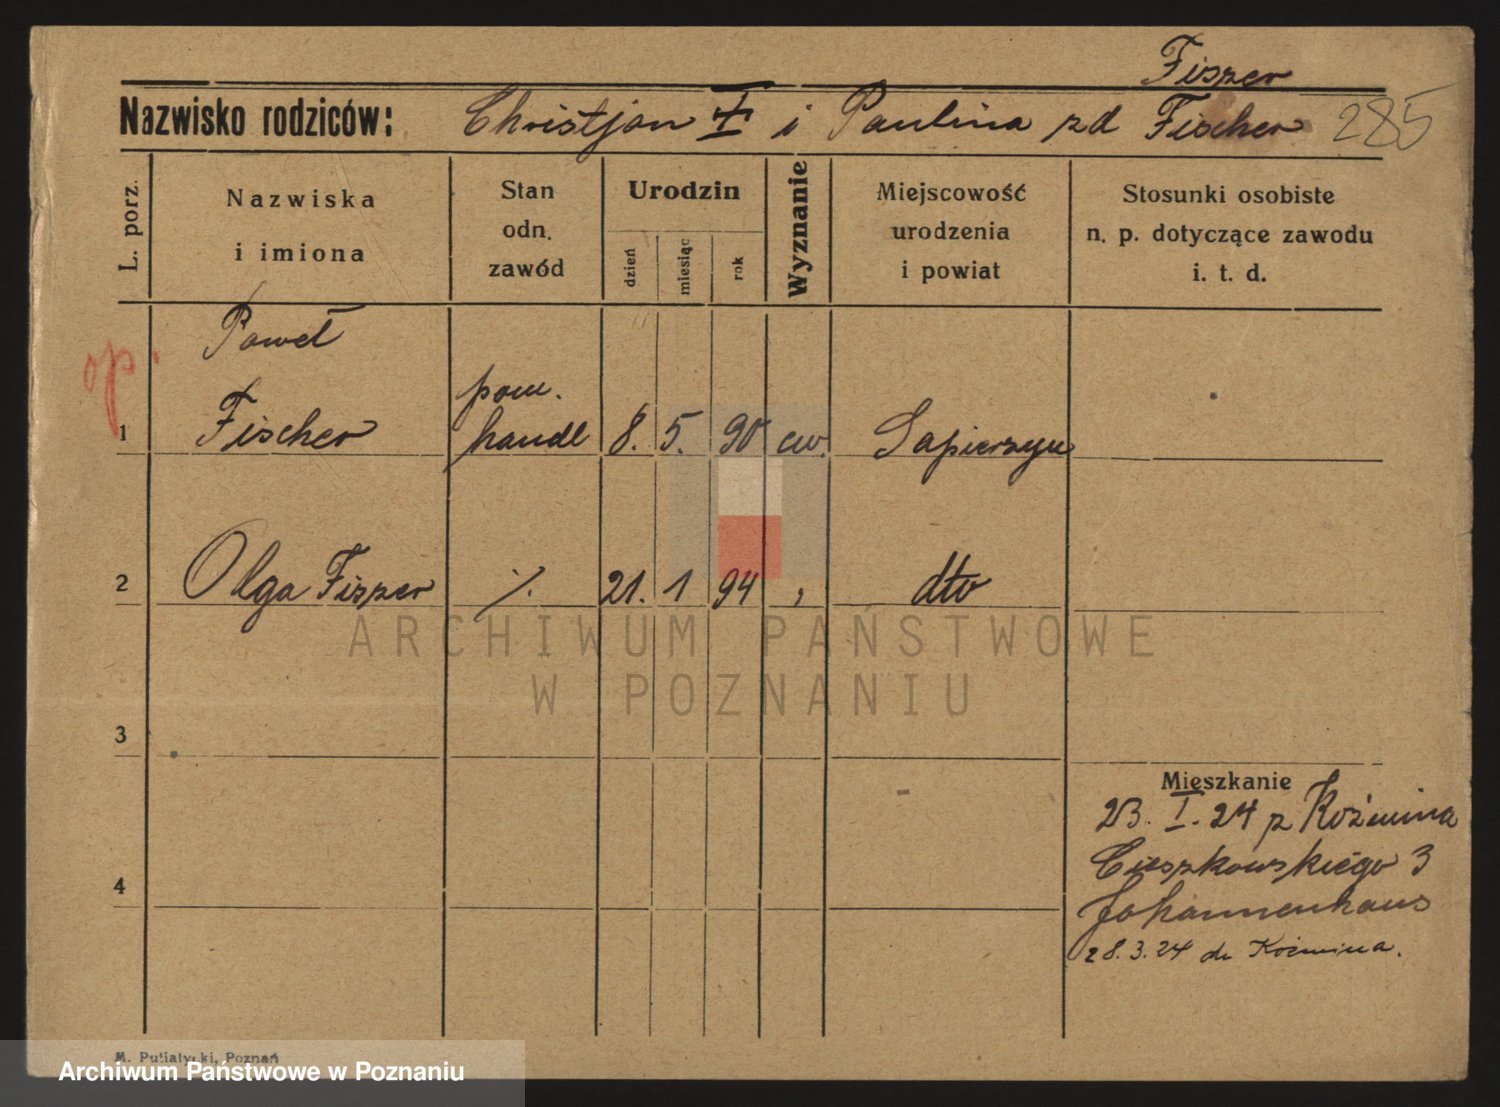 Fiszer
Nazwisko rodziców: Christjan i Paulina zd Fischer 285
L. porz.
Nazwiska
i imiona
Stan
odn.
zawód
Urodzin
dzień
miesiąc
rok
Wyznanie
Miejscowość
urodzenia
i powiat
Stosunki osobiste
n. p. dotyczące zawodu
i. t. d.
op.
Paweł
1 Fischer
pom.
handl 8. 5. 90 ew. Sapierzyn
2 Olga Fiszer ./. 21. 1 94 , dto
ARCHIWUM PAŃSTWOWE
W POZNANIU
3
4
Mieszkanie
23. I. 24 z Koźmina
Cieszkowskiego 3
Johannenhaus
28.3.24 do Koźmina.
M. Putiatycki, Poznań
Archiwum Państwowe w Poznaniu